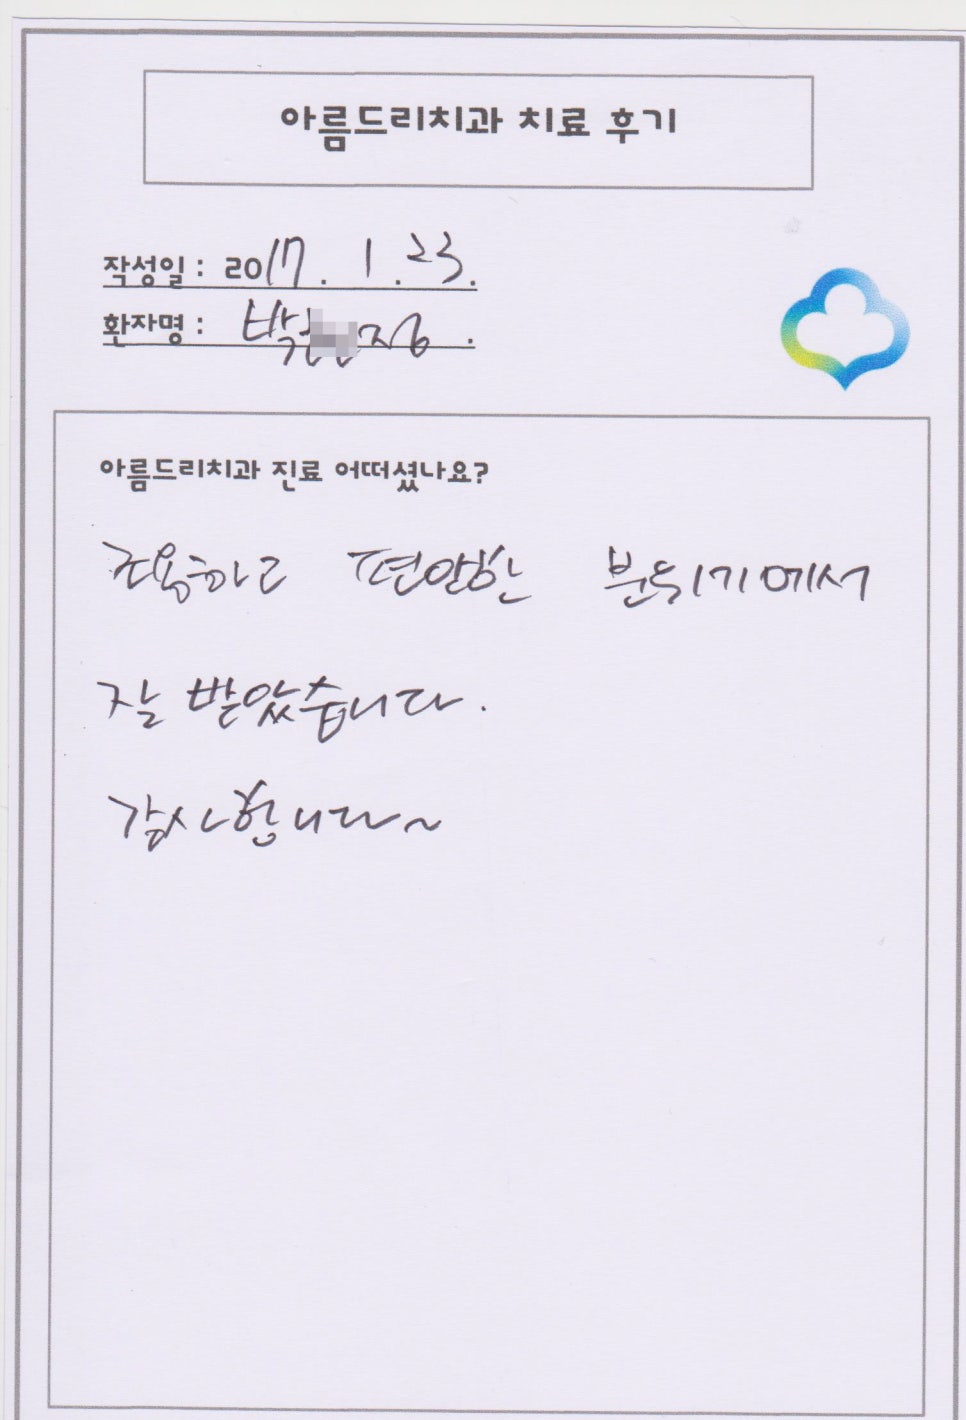 아름드리치과 치료 후기
작성일 : 2017. 1. 23.
환자명 : 박
아름드리치과 진료 어떠셨나요?
조용하고 편안한 분위기에서
잘 받았습니다.
감사합니다~